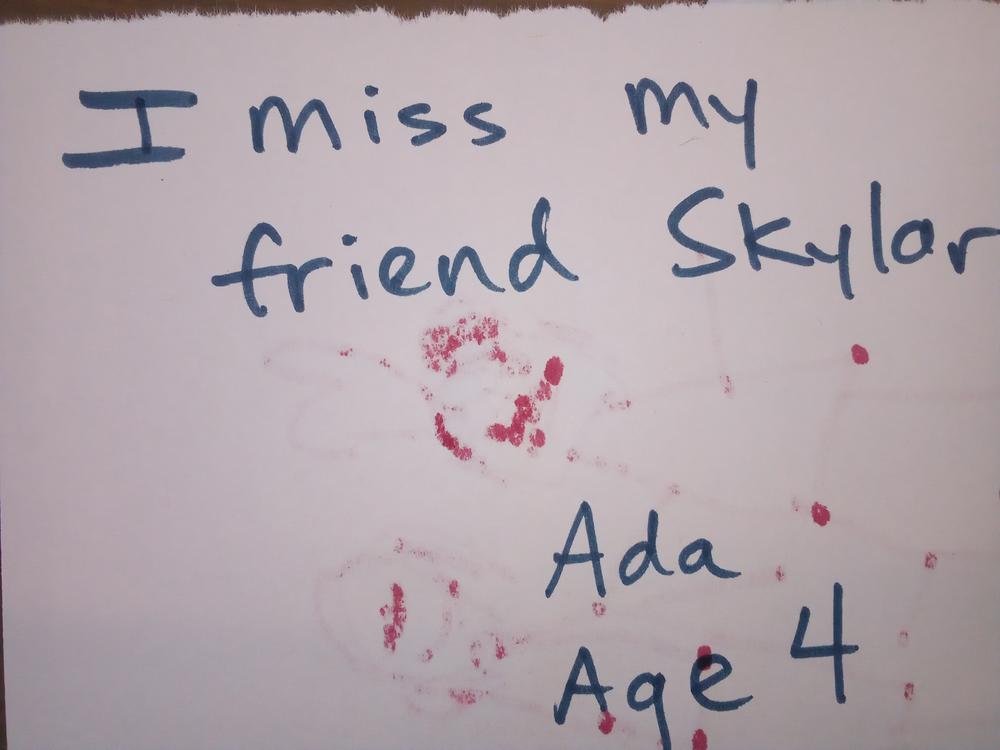 I miss my
friend Skylar
Ada
Age 4